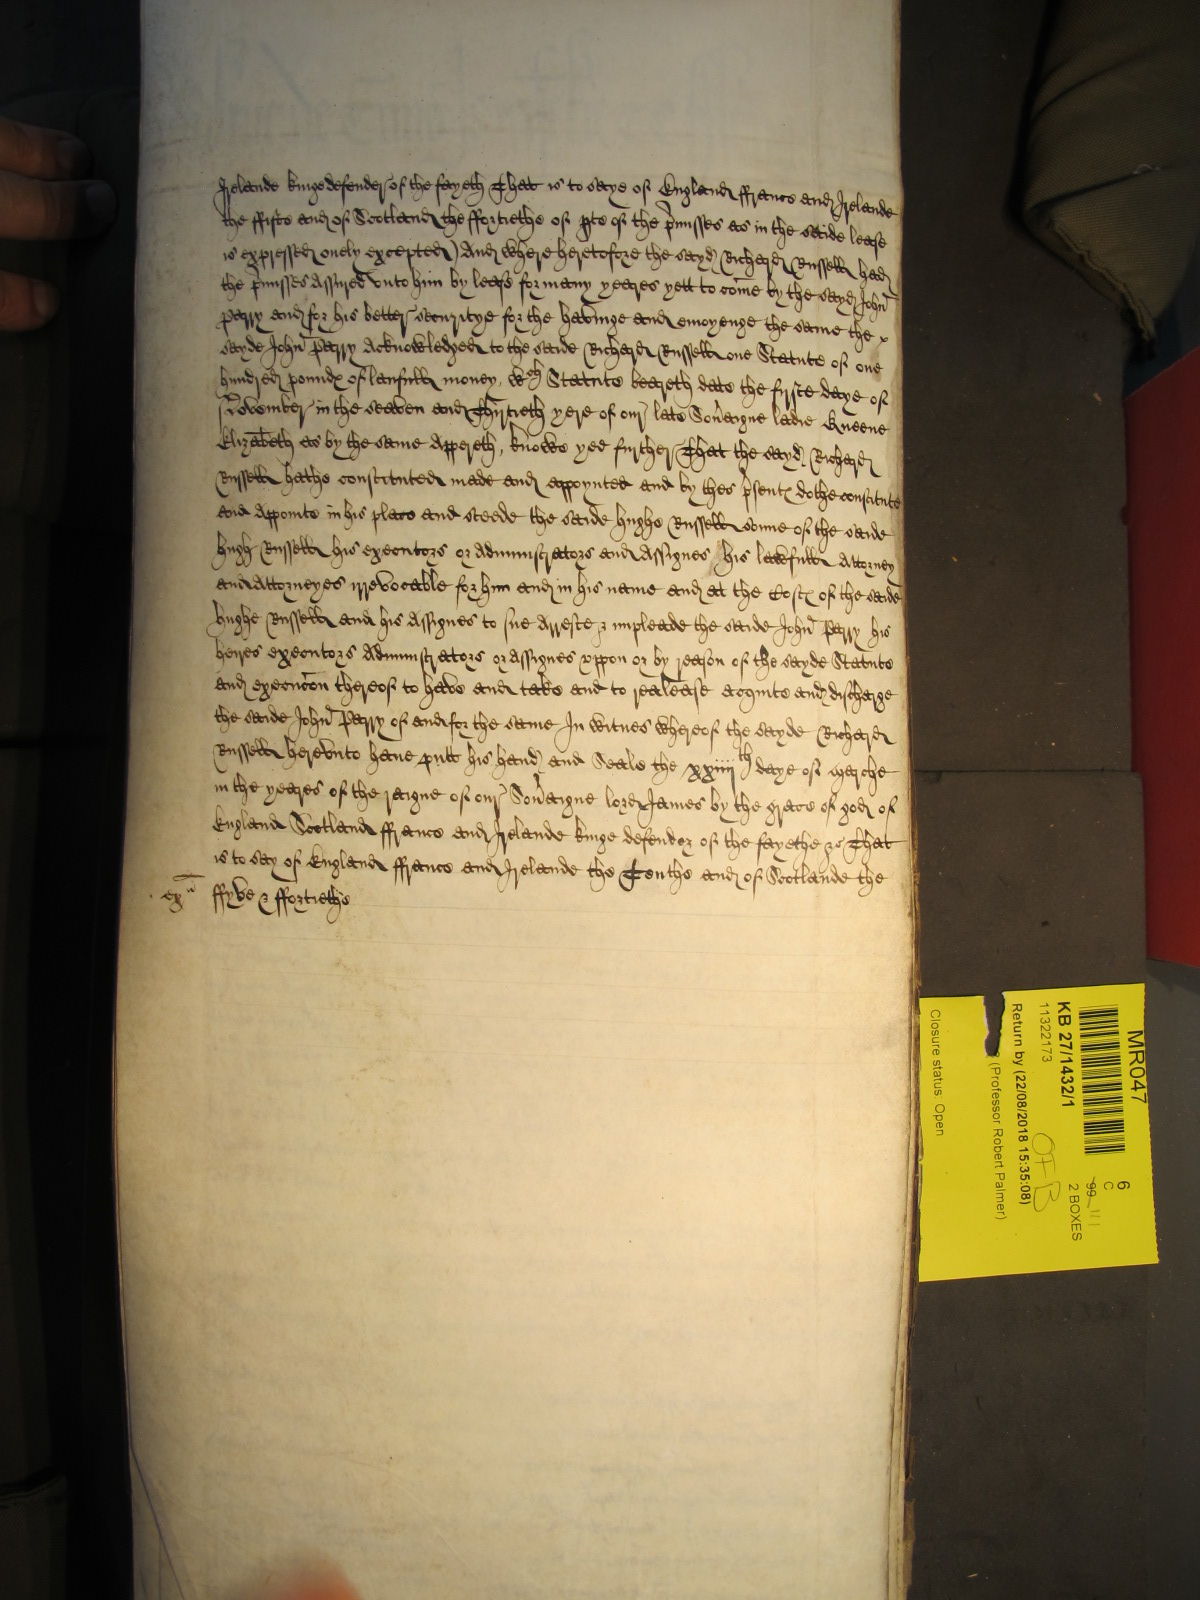 Irelande kinge defender of the fayeth That is to saye of England ffrance and Irelande
the ffifte and of Scotland the ffortiethe of pte of the pmisses as in the saide lease
is expressed onely excepted) And where heretofore the sayd Richard Russell had
the pmisses Assured vnto him by lease for many yeares yett to come by the sayd John
Parry and for his better securitye for the havinge and enioyenge the same the x
sayde John Parry Acknowledged to the saide Richard Russell one Statute of one
hundred pound of laufull money, wch Statute beareth date the firste daye of
November in the seaven and Thirtieth yere of our late Sovaigne ladie Queene
Elizabeth as by the same Appereth, knowe yee further That the sayd Richard
Russell hathe constituted made and appoynted and by thes psent dothe constitute
and Appointe in his place and steede the saide hughe Russell sonne of the saide
hugh Russell his executors or Administrators and Assignes his lawfull Attorney
and Attorneyes irrevocable for him and in his name and at the Cost of the saide
hughe Russell and his Assignes to sue Arreste & impleade the saide John Parry his
heires executors Administrators or Assignes vppon or by reason of the sayde Statute
and execucon thereof to have and take and to realease acquite and discharge
the saide John Parry of and for the same In witnes whereof the sayde Richard
Russell herevnto haue putt his hand and Seale the xxiiiith daye of Marche
in the yeares of the raigne of our Sovaigne lord James by the grace of god of
England Scotland ffrance and Irelande kinge defendor of the fayethe &c That
is to say of England ffrance and Irelande the Tenthe and of Scotlande the
exr ffyve & ffortiethe
MR047
6
C
99 111
2 BOXES
KB 27/1432/1
11322173
OFB
Return by (22/08/2018 15:35:08)
(Professor Robert Palmer)
Closure status: Open